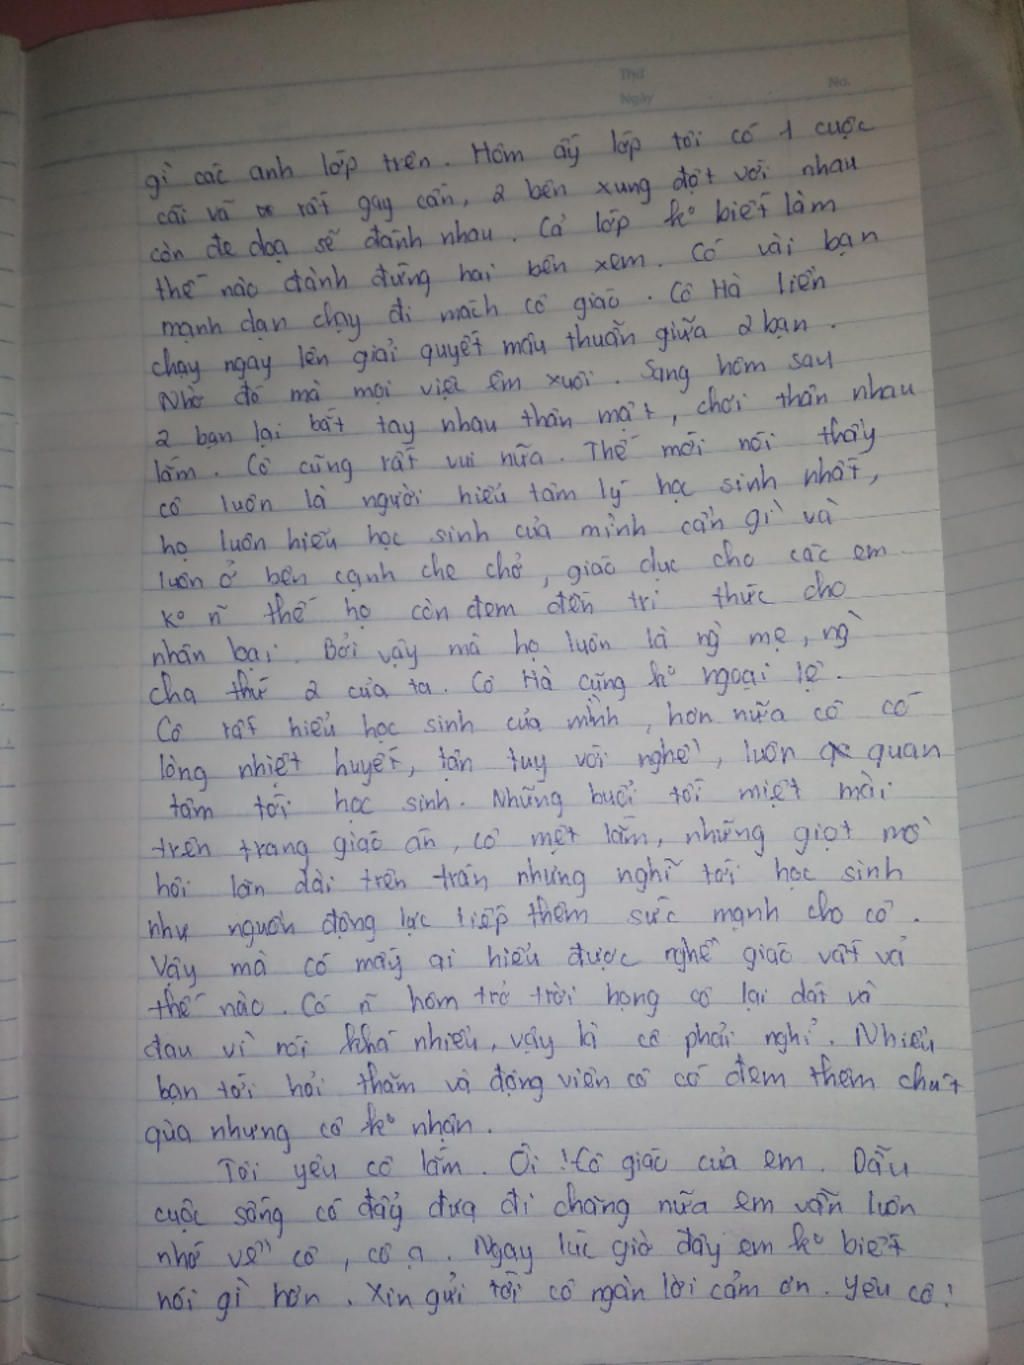 Thứ
No.
Ngày
gì các anh lớp trên. Hôm ấy lớp tôi có 1 cuộc
cãi vã rất gay cấn, 2 bên xung đột với nhau
còn đe dọa sẽ đánh nhau. Cả lớp ko biết làm
thế nào đành đứng hai bên xem. Có vài bạn
mạnh dạn chạy đi mách cô giáo. Cô Hà liền
chạy ngay lên giải quyết mâu thuẫn giữa 2 bạn.
Nhờ đó mà mọi việc êm xuôi. Sang hôm sau
2 bạn lại bắt tay nhau thân mật, chơi thân nhau
lắm. Cô cũng rất vui nữa. Thế mới nói thầy
cô luôn là người hiểu tâm lý học sinh nhất,
họ luôn hiểu học sinh của mình cần gì và
luôn ở bên cạnh che chở, giáo dục cho các em
ko n~ thế họ còn đem đến tri thức cho
nhân loại. Bởi vậy mà họ luôn là ng` mẹ, ng`
cha thứ 2 của ta. Cô Hà cũng ko ngoại lệ.
Cô rất hiểu học sinh của mình, hơn nữa cô có
lòng nhiệt huyết, tận tuy với nghề, luôn quan
tâm tới học sinh. Những buổi tối miệt mài
trên trang giáo án, cô mệt lắm, những giọt mồ
hôi lăn dài trên trán nhưng nghĩ tới học sinh
như nguồn động lực tiếp thêm sức mạnh cho cô.
Vậy mà có mấy ai hiểu được nghề giáo vất vả
thế nào. Có n~ hôm trở trời họng cô lại dát và
đau vì nói khá nhiều, vậy là cô phải nghỉ. Nhiều
bạn tới hỏi thăm và động viên cô có đem thêm chút
qùa nhưng cô ko nhận.
Tôi yêu cô lắm. Ôi! Cô giáo của em. Dẫu
cuộc sống có đẩy đưa đi chăng nữa em vẫn luôn
nhớ về cô, cô ạ. Ngay lúc giờ đây em ko biết
nói gì hơn. Xin gửi tới cô ngàn lời cảm ơn. Yêu cô!